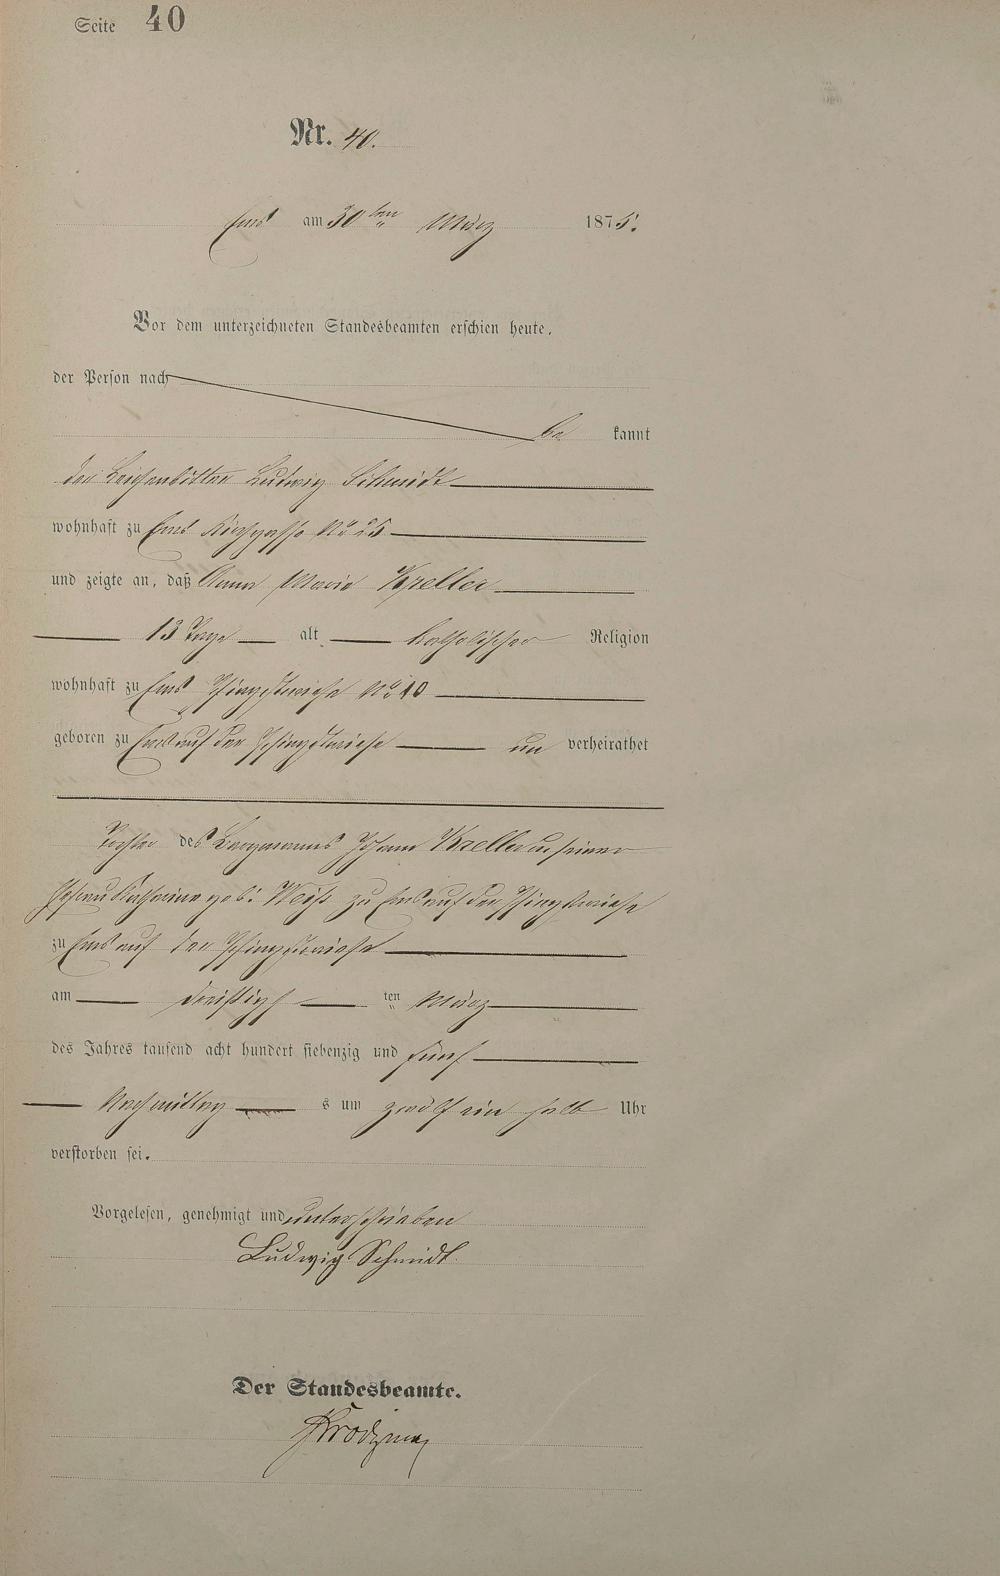 Seite 40
Nr. 40.
Ems am 30ten März 1875.
Vor dem unterzeichneten Standesbeamten erschien heute,
der Person nach
be kannt
der Leichenbitter Ludwig Schmidt
wohnhaft zu Ems Kirchgasse No 25
und zeigte an, daß Anna Maria Kreller
13 Tage alt katholischer Religion
wohnhaft zu Ems Pfingstwiese No 10
geboren zu Ems auf der Pfingstwiese un verheirathet
Tochter des Bergmanns Johann Kreller u. seiner
Ehefrau Katharina geb. zu Ems auf der Pfingstwiese
zu Ems auf der Pfingstwiese
am dreißigs ten März
des Jahres tausend acht hundert siebenzig und fünf
Nachmittag s um zwölf ein halb Uhr
verstorben sei.
Vorgelesen, genehmigt und unterschrieben
Ludwig Schmidt
Der Standesbeamte.